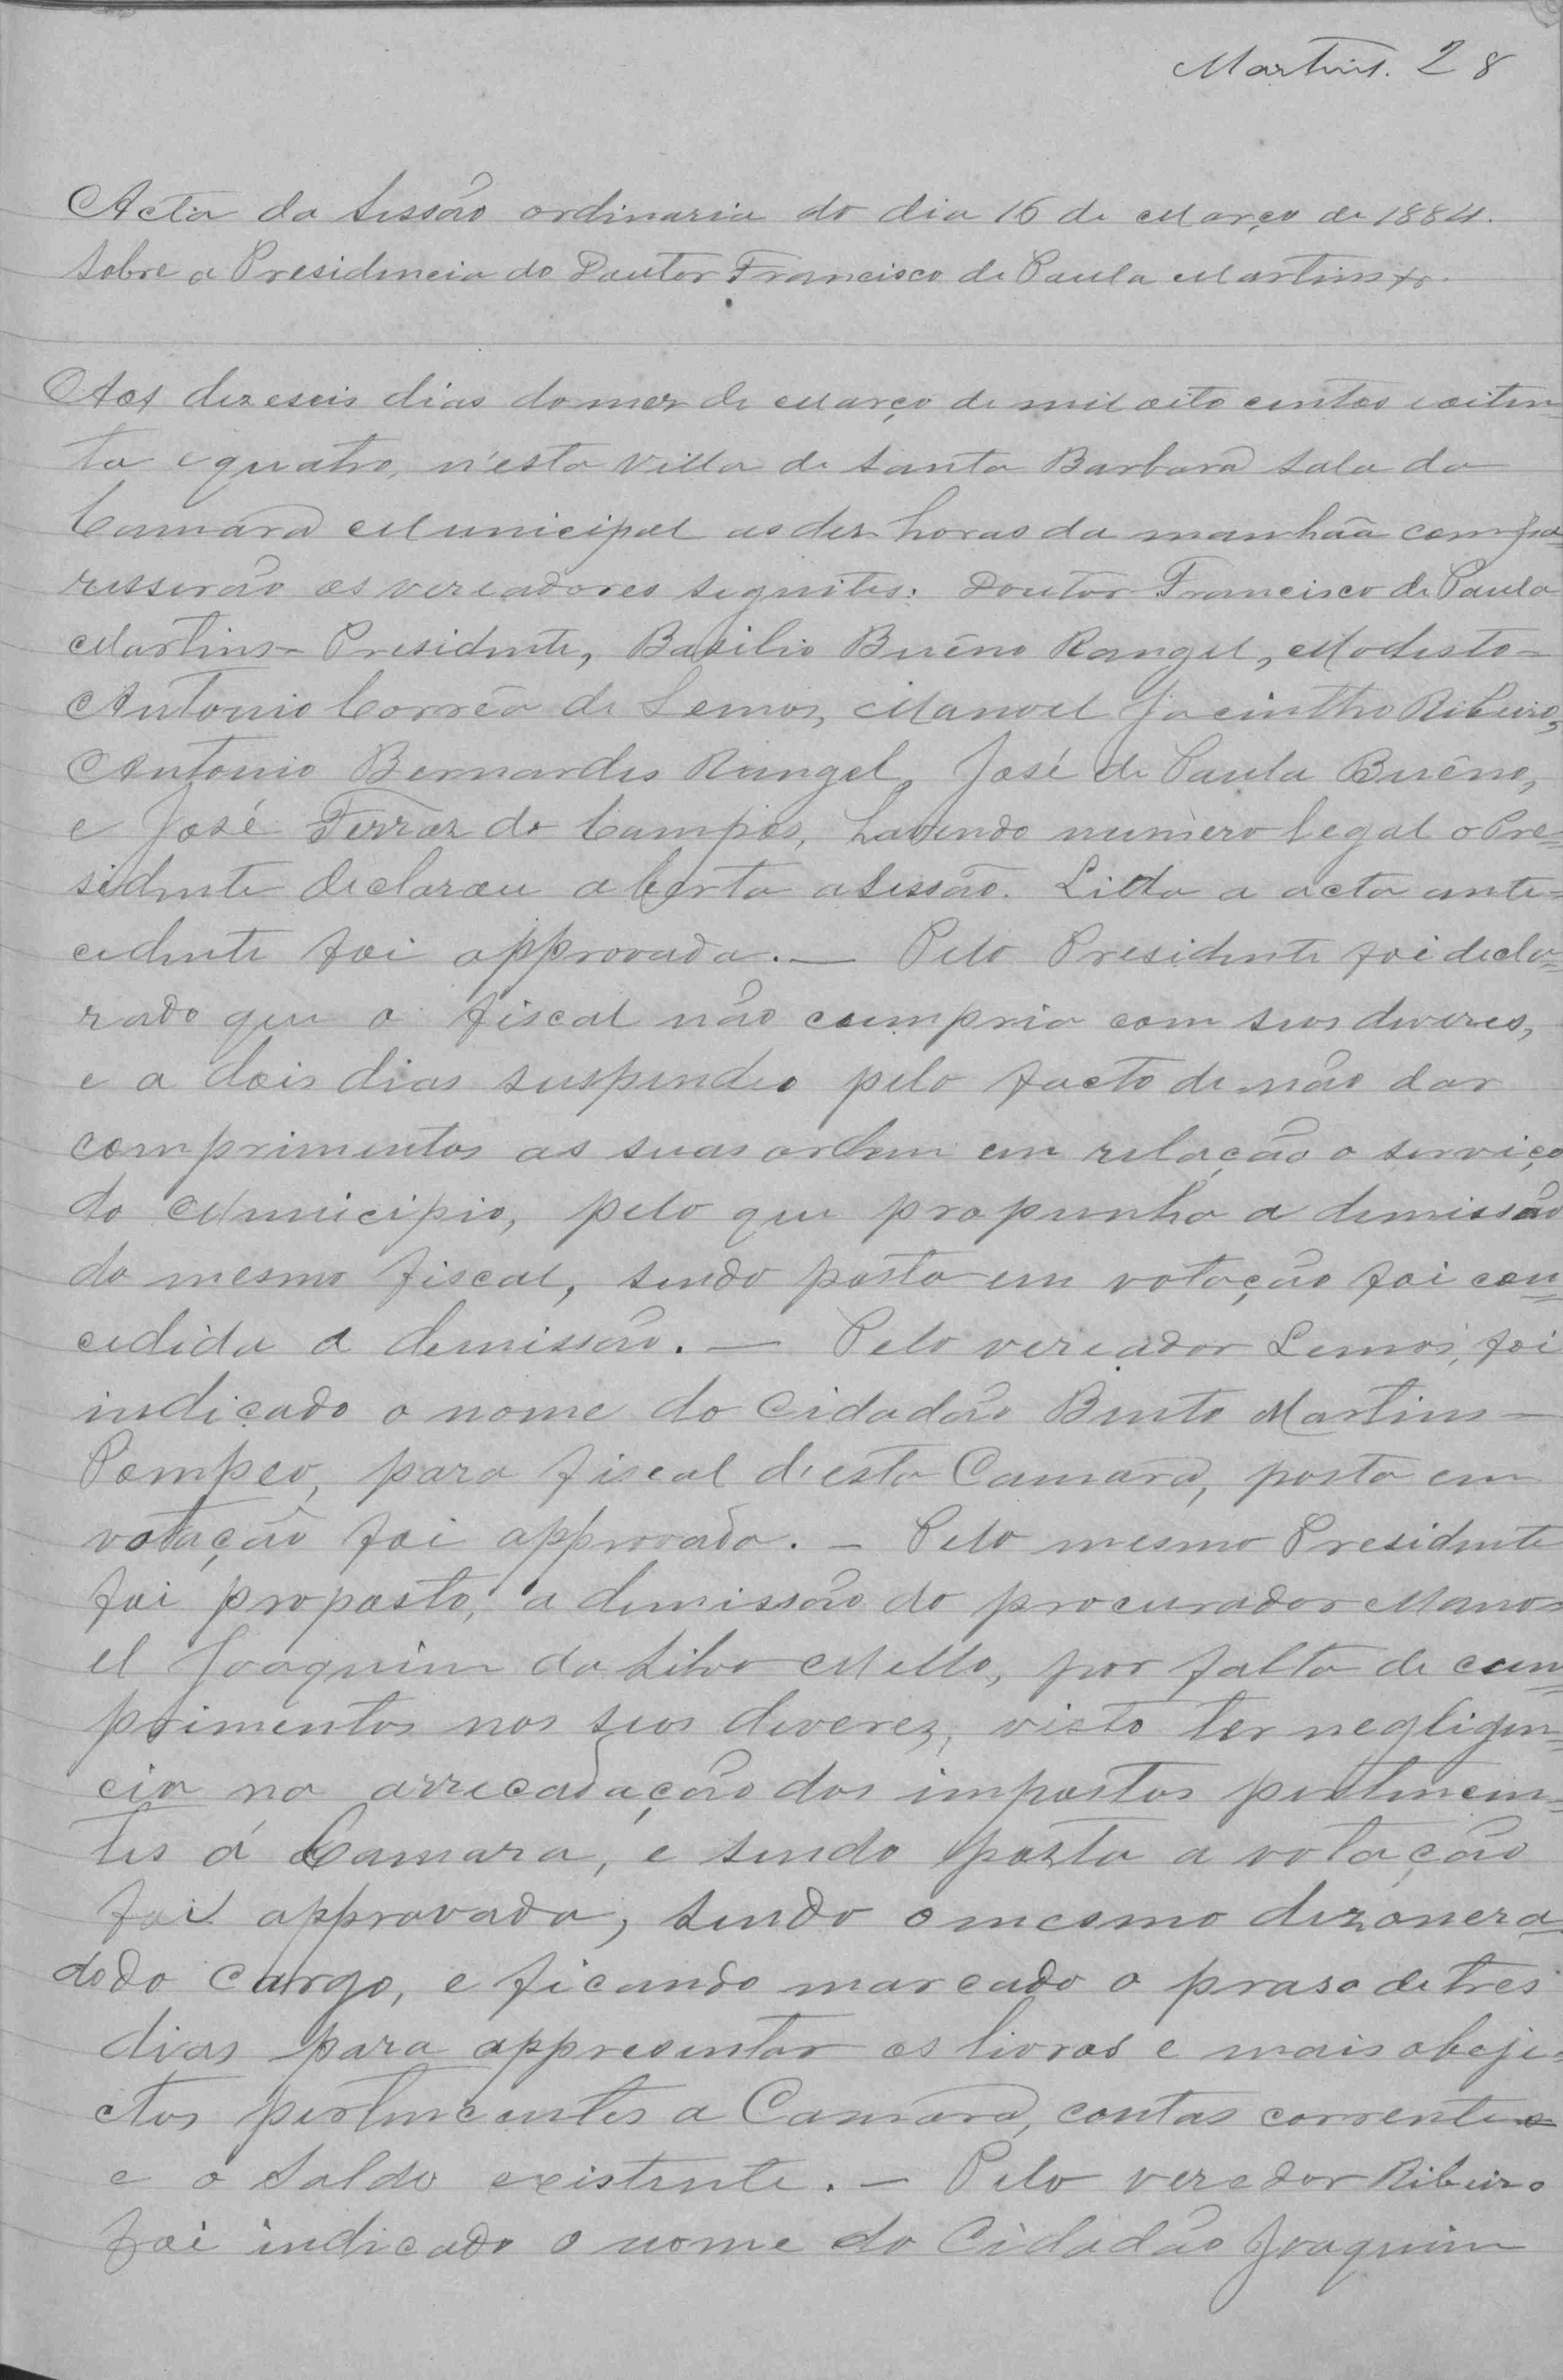 Martins. 28
Acta da Sessão ordinaria do dia 16 de Março de 1884.
Sobre a Presidencia do Doutor Francisco de Paula Martins
Aos dezeseis dias do mez de Março de mil oito centos e oiten=
ta e quatro, n'esta Villa de Santa Barbara sala da
Camara Municipal as dez horas da manhãa compa=
resserão os vereadores seguites: Doutor Francisco de Paula
Martins - Presidente, Basilio Buêno Rangel, Modesto -
Antonio Corrêa de Lemos, Manoel Jacintho Ribeiro,
Antonio Bernardes Rangel, José de Paula Buêno,
e José Ferraz de Campos, havendo numero legal o Pre=
sidente declarou aberta a Sessão. Lida a acta ante=
cedente foi approvada. — Pelo Presidente foi decla=
rado que o fiscal não cumpria com seos deveres,
e a dois dias suspendeo pelo facto de não dar
comprimentos as suas ordem em relação o serviço
do Municipio, pelo que propunha a demissão
do mesmo fiscal, sendo posta em votação foi con=
cedida a demissão. — Pelo vereador Lemos, foi
indicado o nome do Cidadão Bento Martins -
Pompeo, para fiscal d'esta Camara, posta em
votação foi approvado. - Pelo mesmo Presidente
foi proposto, a demissão do procurador Mano=
el Joaquim da Silva Mello, por falta de cum=
primentos nos seos deverez, visto ter negligen=
cia na arrecadação dos impostos pertinem=
tes á Camara, e sendo posta a votação
foi approvada, sendo o mesmo dezonera=
do do cargo, e ficando marcado o praso de tres
dias para appresentar os livros e mais obeje=
ctos pertinentes a Camara, contas correntes
e o Saldo existente. - Pelo veredor Ribeiro
foi indicado o nome do Cidadão Joaquim